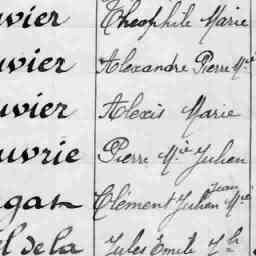 uvier Theophile Marie
uvier Alexandre Pierre Mie
uvier Alexis Marie
ouvrie Pierre Mie Julien
Jean
gan Clément Julien Mie
l de la Jules Emile